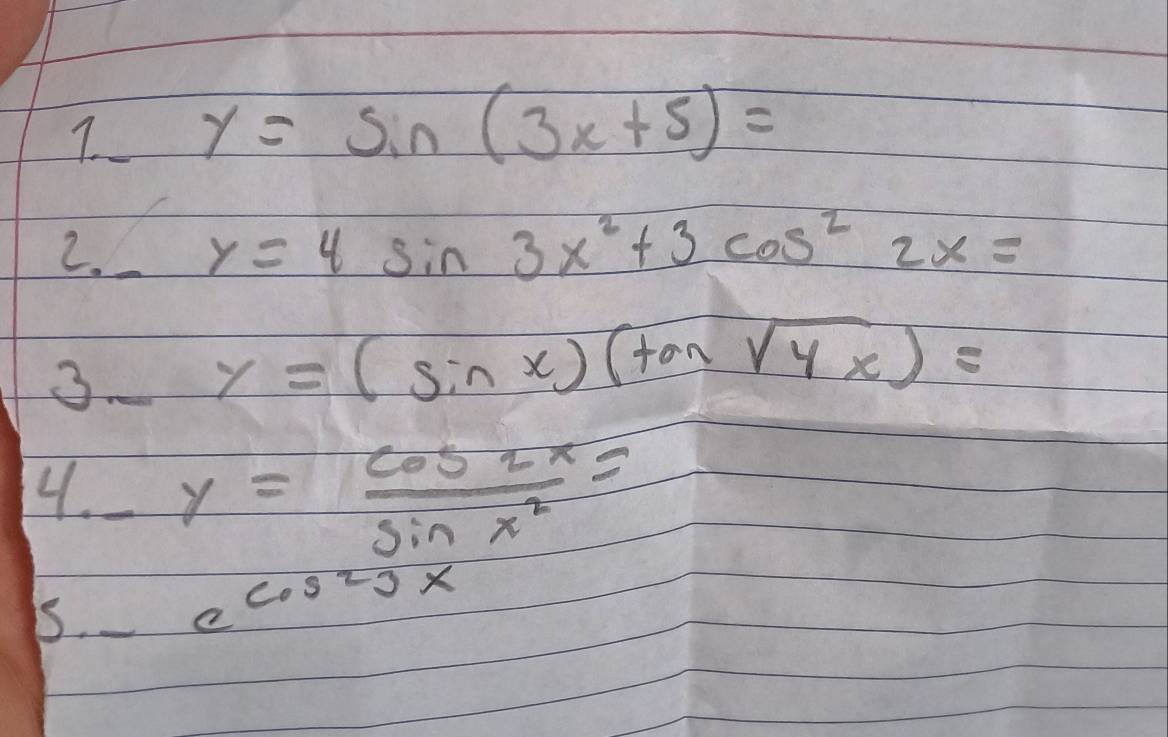 1.- y = sin (3x+5) =
2.- y = 4 sin 3x² + 3 cos² 2x =
3.- y = (sin x)(tan √4x) =
4.- y = cos 2x / sin x² =
5.- e^cos²3x